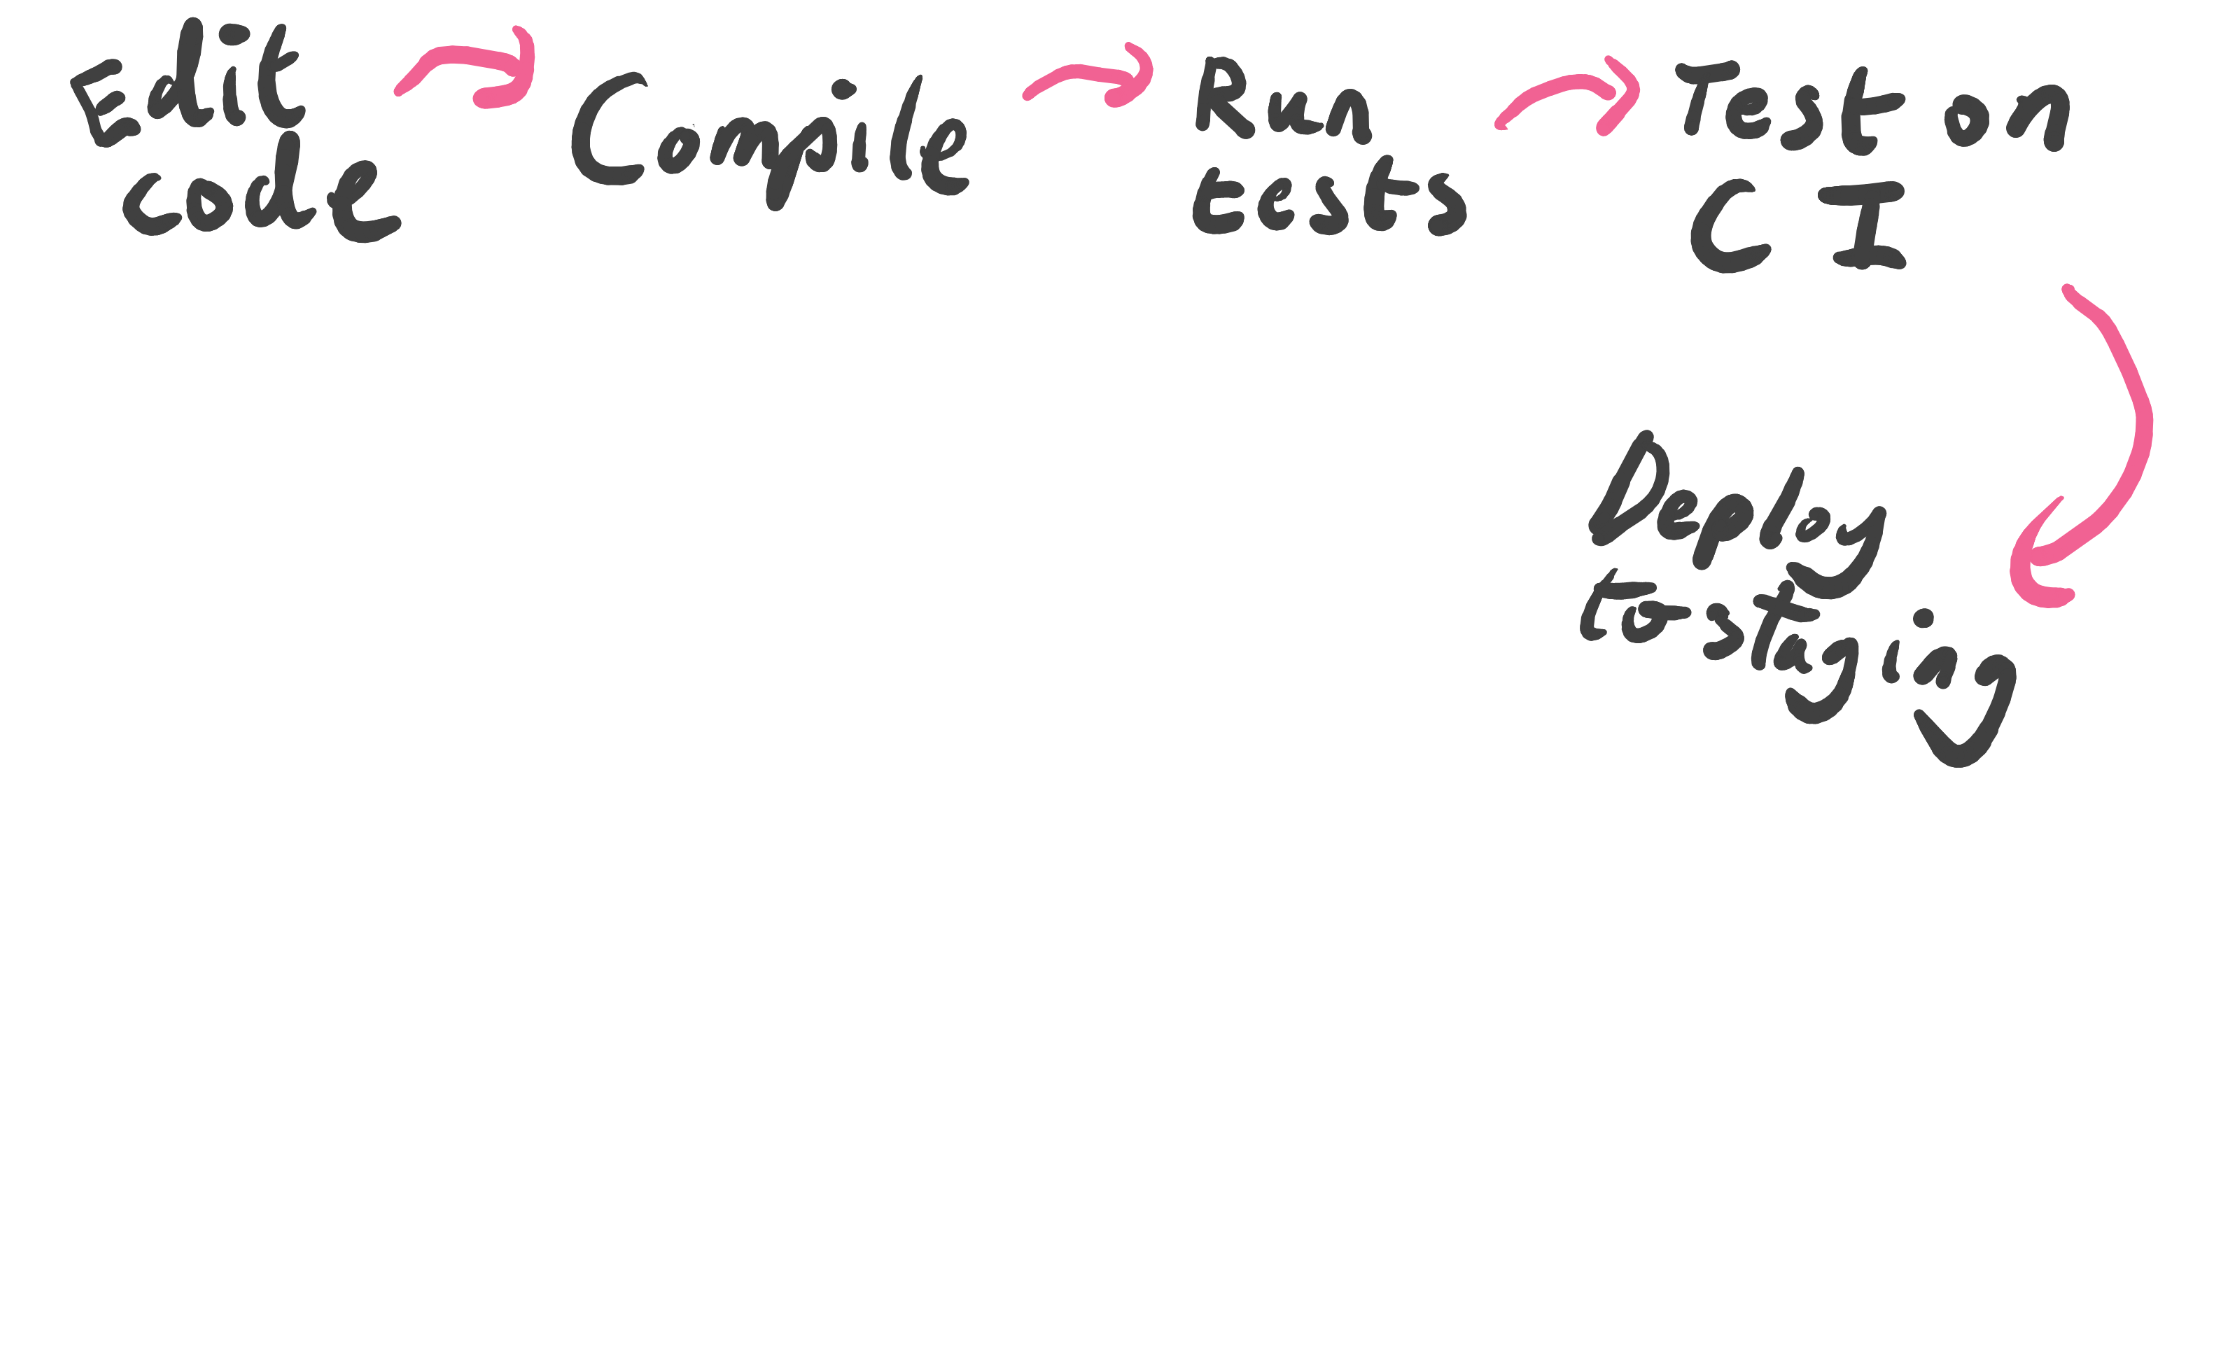 Edit
code
Compile
Run
tests
Test on
CI
Deploy
to staging